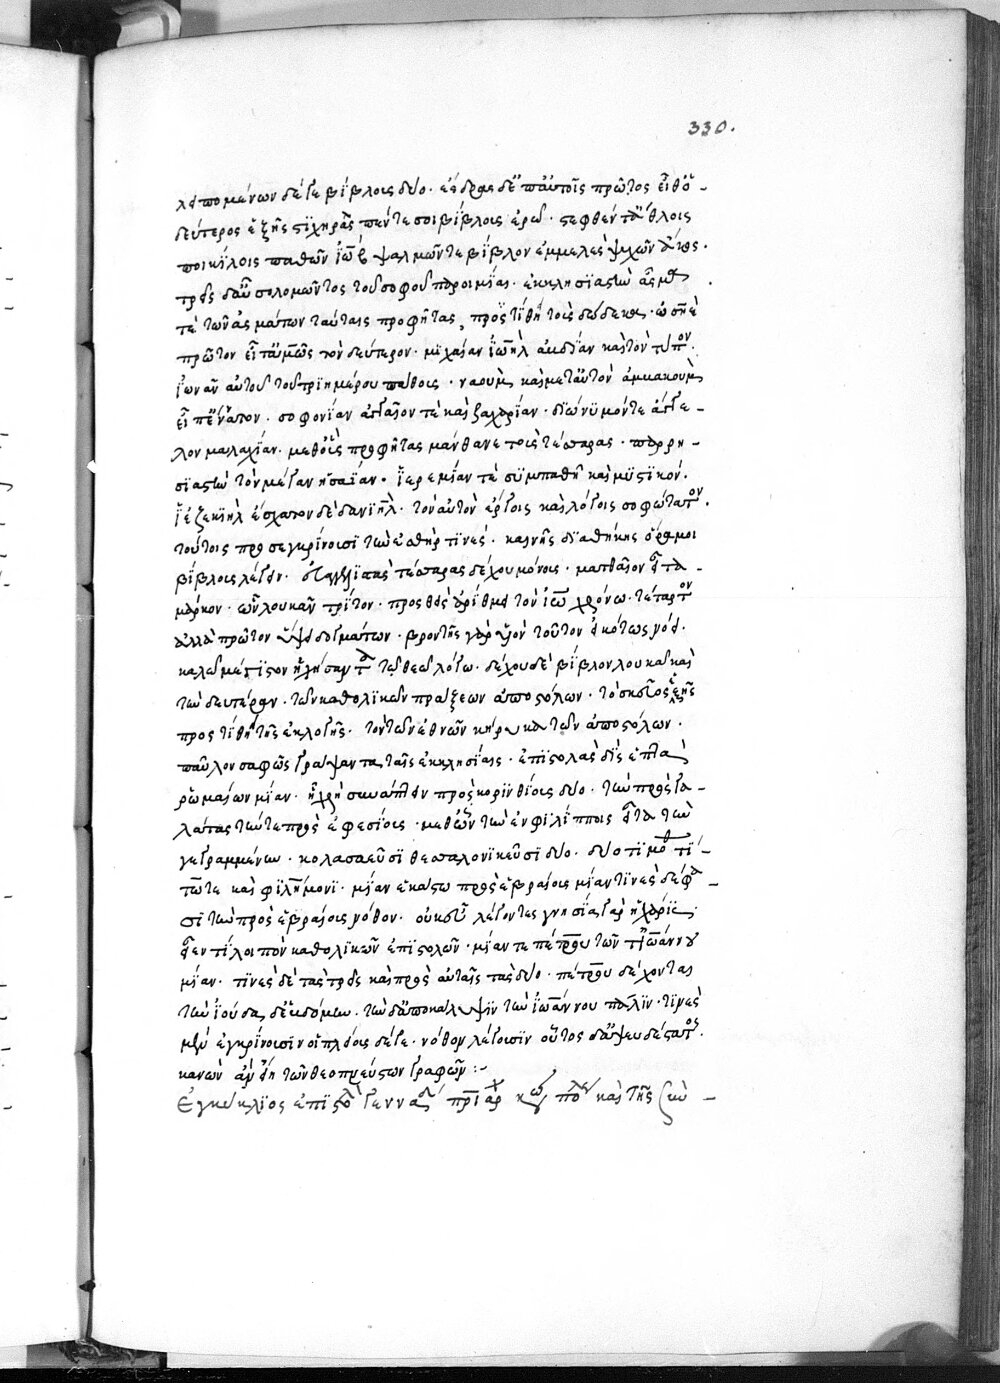 330.
λειπομένων δέ γε βίβλοις δύο. ἔσδρας δ' ἐπ' αὐτοῖς πρῶτος εἶθ' ὁ
δεύτερος ἑξῆς στιχηρὰς πέντε σοι βίβλους ἐρῶ. στεφθέντα ἄθλοις
ποικίλοις παθῶν ἰὼβ ψαλμῶν τε βίβλον ἐμμελὲς ψυχῶν ἄκος.
τρεῖς δ' αὖ σολομῶντος τοῦ σοφοῦ παροιμίαι. ἐκκλησιαστὴν ἆσμα
τὲ τῶν ἀσμάτων ταύταις προφήτας προστίθει τοὺς δώδεκα. ὡσηὲ
πρῶτον εἶτ' ἀμὼς τὸν δεύτερον. μιχαίαν ἰωὴλ ἀβδίαν καὶ τὸν τύπον.
ἰωνᾶν αὐτοῦ τοῦ τριημέρου πάθους. ναοὺμ καὶ μετ' αὐτὸν ἀμβακοὺμ
εἶτ' ἔνατον. σοφονίαν ἀγγαῖον τὲ καὶ ζαχαρίαν. διώνυμόν τε ἄγγε-
λον μαλαχίαν. μεθ' οὓς προφήτας μάνθανε τοὺς τέσσαρας. παρρη-
σιαστὴν τὸν μέγαν ἡσαΐαν. ἱερεμίαν τὲ συμπαθῆ καὶ μυστικὸν.
ἰεζεκιὴλ ἔσχατον δὲ δανιὴλ. τὸν αὐτὸν ἔργοις καὶ λόγοις σοφώτατον.
τούτοις προσεγκρίνουσι τὴν ἐσθὴρ τινές. καινῆς διαθήκης ὥρα μοι
βίβλους λέγειν. εὐαγγελιστὰς τέσσαρας δέχου μόνους. ματθαῖον εἶτα
μάρκον. ὧν λουκᾶν τρίτον. προσθεὶς ἀρίθμει τὸν ἰωάννην χρόνω. τέταρτον
ἀλλὰ πρῶτον ὕψει δογμάτων. βροντῆς γὰρ υἱὸν τοῦτον εἰκότως
καλῶ μέγιστον ἠχήσαντα τῷ θεοῦ λόγω. δέχου δὲ βίβλον λουκᾶ καὶ
τὴν δευτέραν. τῶν καθολικῶν πράξεων ἀποστόλων. τὸ σκεῦος ἑξῆς
προστίθει τῆς ἐκλογῆς. τὸν τῶν ἐθνῶν κήρυκα τῶν ἀποστόλων.
παῦλον σαφῶς γράψαντα ταῖς ἐκκλησίαις. ἐπιστολὰς δὶς ἑπτὰ
ῥωμαίων μίαν. ᾗ χρὴ συνάπτειν πρὸς κορινθίους δύο. τὴν πρὸς γα-
λάτας τήν τε πρὸς ἐφεσίους. μεθ' ὧν τὴν ἐν φιλίπποις εἶτα τὴν
γεγραμμένην. κολασαεῦσι θεσσαλονικεῦσι δύο. δύο τιμοθέῳ τί-
τῳ τε καὶ φιλήμονι. μίαν ἑκάστω πρὸς ἑβραίους μίαν τινὲς δέ φα-
σι τὴν πρὸς ἑβραίους νόθον. οὐκ εὖ λέγοντες γνησία γὰρ ἡ χάρις
εἶεν τί λοιπὸν καθολικῶν ἐπιστολῶν. μίαν τε πέτρου τῶν τ' ἰωάννου
μίαν. τινὲς δὲ τὰς τρεῖς καὶ πρὸς αὐταῖς τὰς δύο. πέτρου δέχονται
τὴν ἰούδα δ' ἑβδόμην. τὴν δ' ἀποκάλυψιν τὴν ἰωάννου πάλιν. τινὲς
μὲν ἐγκρίνουσιν οἱ πλείους δέ γε. νόθον λέγουσιν οὗτος ἀψευδέστατος.
κανὼν ἂν εἴη τῶν θεοπνεύστων γραφῶν :-
Ἐγκύκλιος ἐπιστολὴ γενναδ πριάρχ κων πόλ καὶ τῆς σὺν